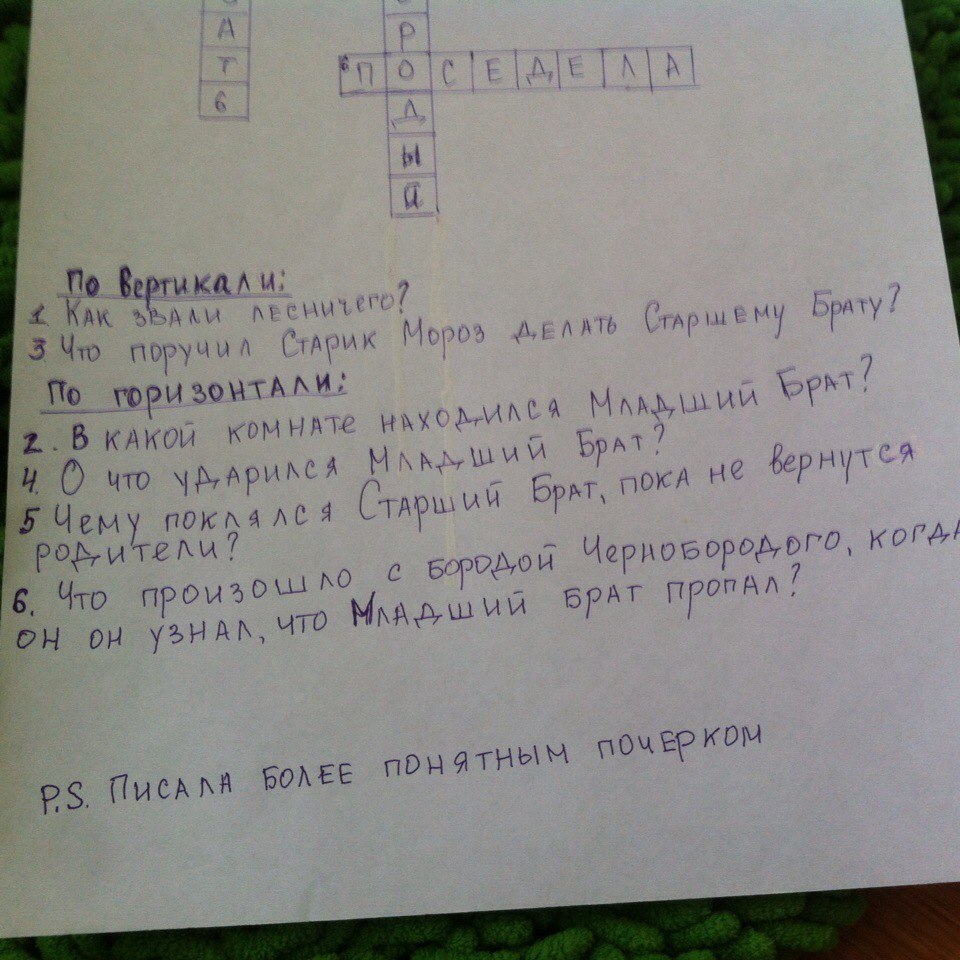 АТЬ
РОДЫЙ
6 ПОСЕДЕЛА
По вертикали:
1 Как звали лесничего?
3 Что поручил Старик Мороз делать Старшему Брату?
По горизонтали:
2. В какой комнате находился Младший Брат?
4. О что ударился Младший Брат?
5 Чему поклялся Старший Брат, пока не вернутся
родители?
6. Что произошло с бородой Чернобородого, когда
он он узнал, что Младший брат пропал?
P.S. Писала более понятным почерком